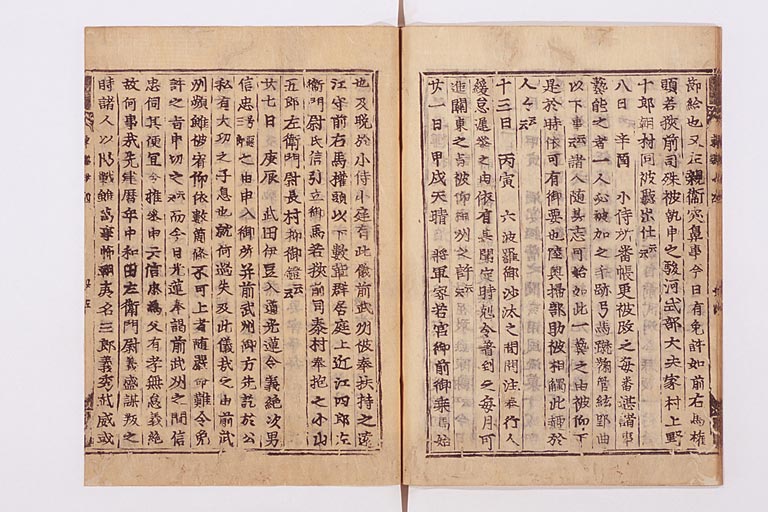 節給也又正親衛穴鼻事今日有免許如前右馬権
頭若狭前司殊被執申之駿河式部大夫家村上野
十郎朝村同被聴出仕云云
八日 辛酉 小侍所番帳更被改之毎番堪諸事
藝能之者一人必被加之手跡弓馬蹴鞠管絃郢曲
以下事云云諸人随其志可始如此一藝之由被仰下
是於時依可有御要也陸奥掃部助被相觸此趣於
人々云云
十三日 丙寅 六波羅御沙汰之間問注奉行人
緩怠遅参之由依有其聞定時剋令着到之毎月可
進關東之旨被仰相州之許云云
廿一日 甲戌天晴 將軍家若宮御前御乗馬始
也及晩於小侍小庭有此儀前武州被奉扶持之遠
江守前右馬權頭以下數輩群居庭上近江四郎左
衛門尉氏信引立御馬若狭前司泰村奉抱之小山
五郎左衛門尉長村抑御鐙云云
廿七日 庚辰 武田伊豆入道光蓮令義絶次男
信忠之由申入御所并前武州御方先訖於公
私有大功之子息也就何過失及此儀哉之由前武
州頻雖被宥仰依數箇條不可上者隨嚴命難令免
許之旨申切之云云而今日光蓮奉謁前武州之間信
忠伺其便宜令推参申云信忠為父有孝無怠義絶
故何事哉先建暦年中和田左衛門尉義盛謀叛之
時諸人以防戰雖為事怖朝夷名三郎義秀武威或